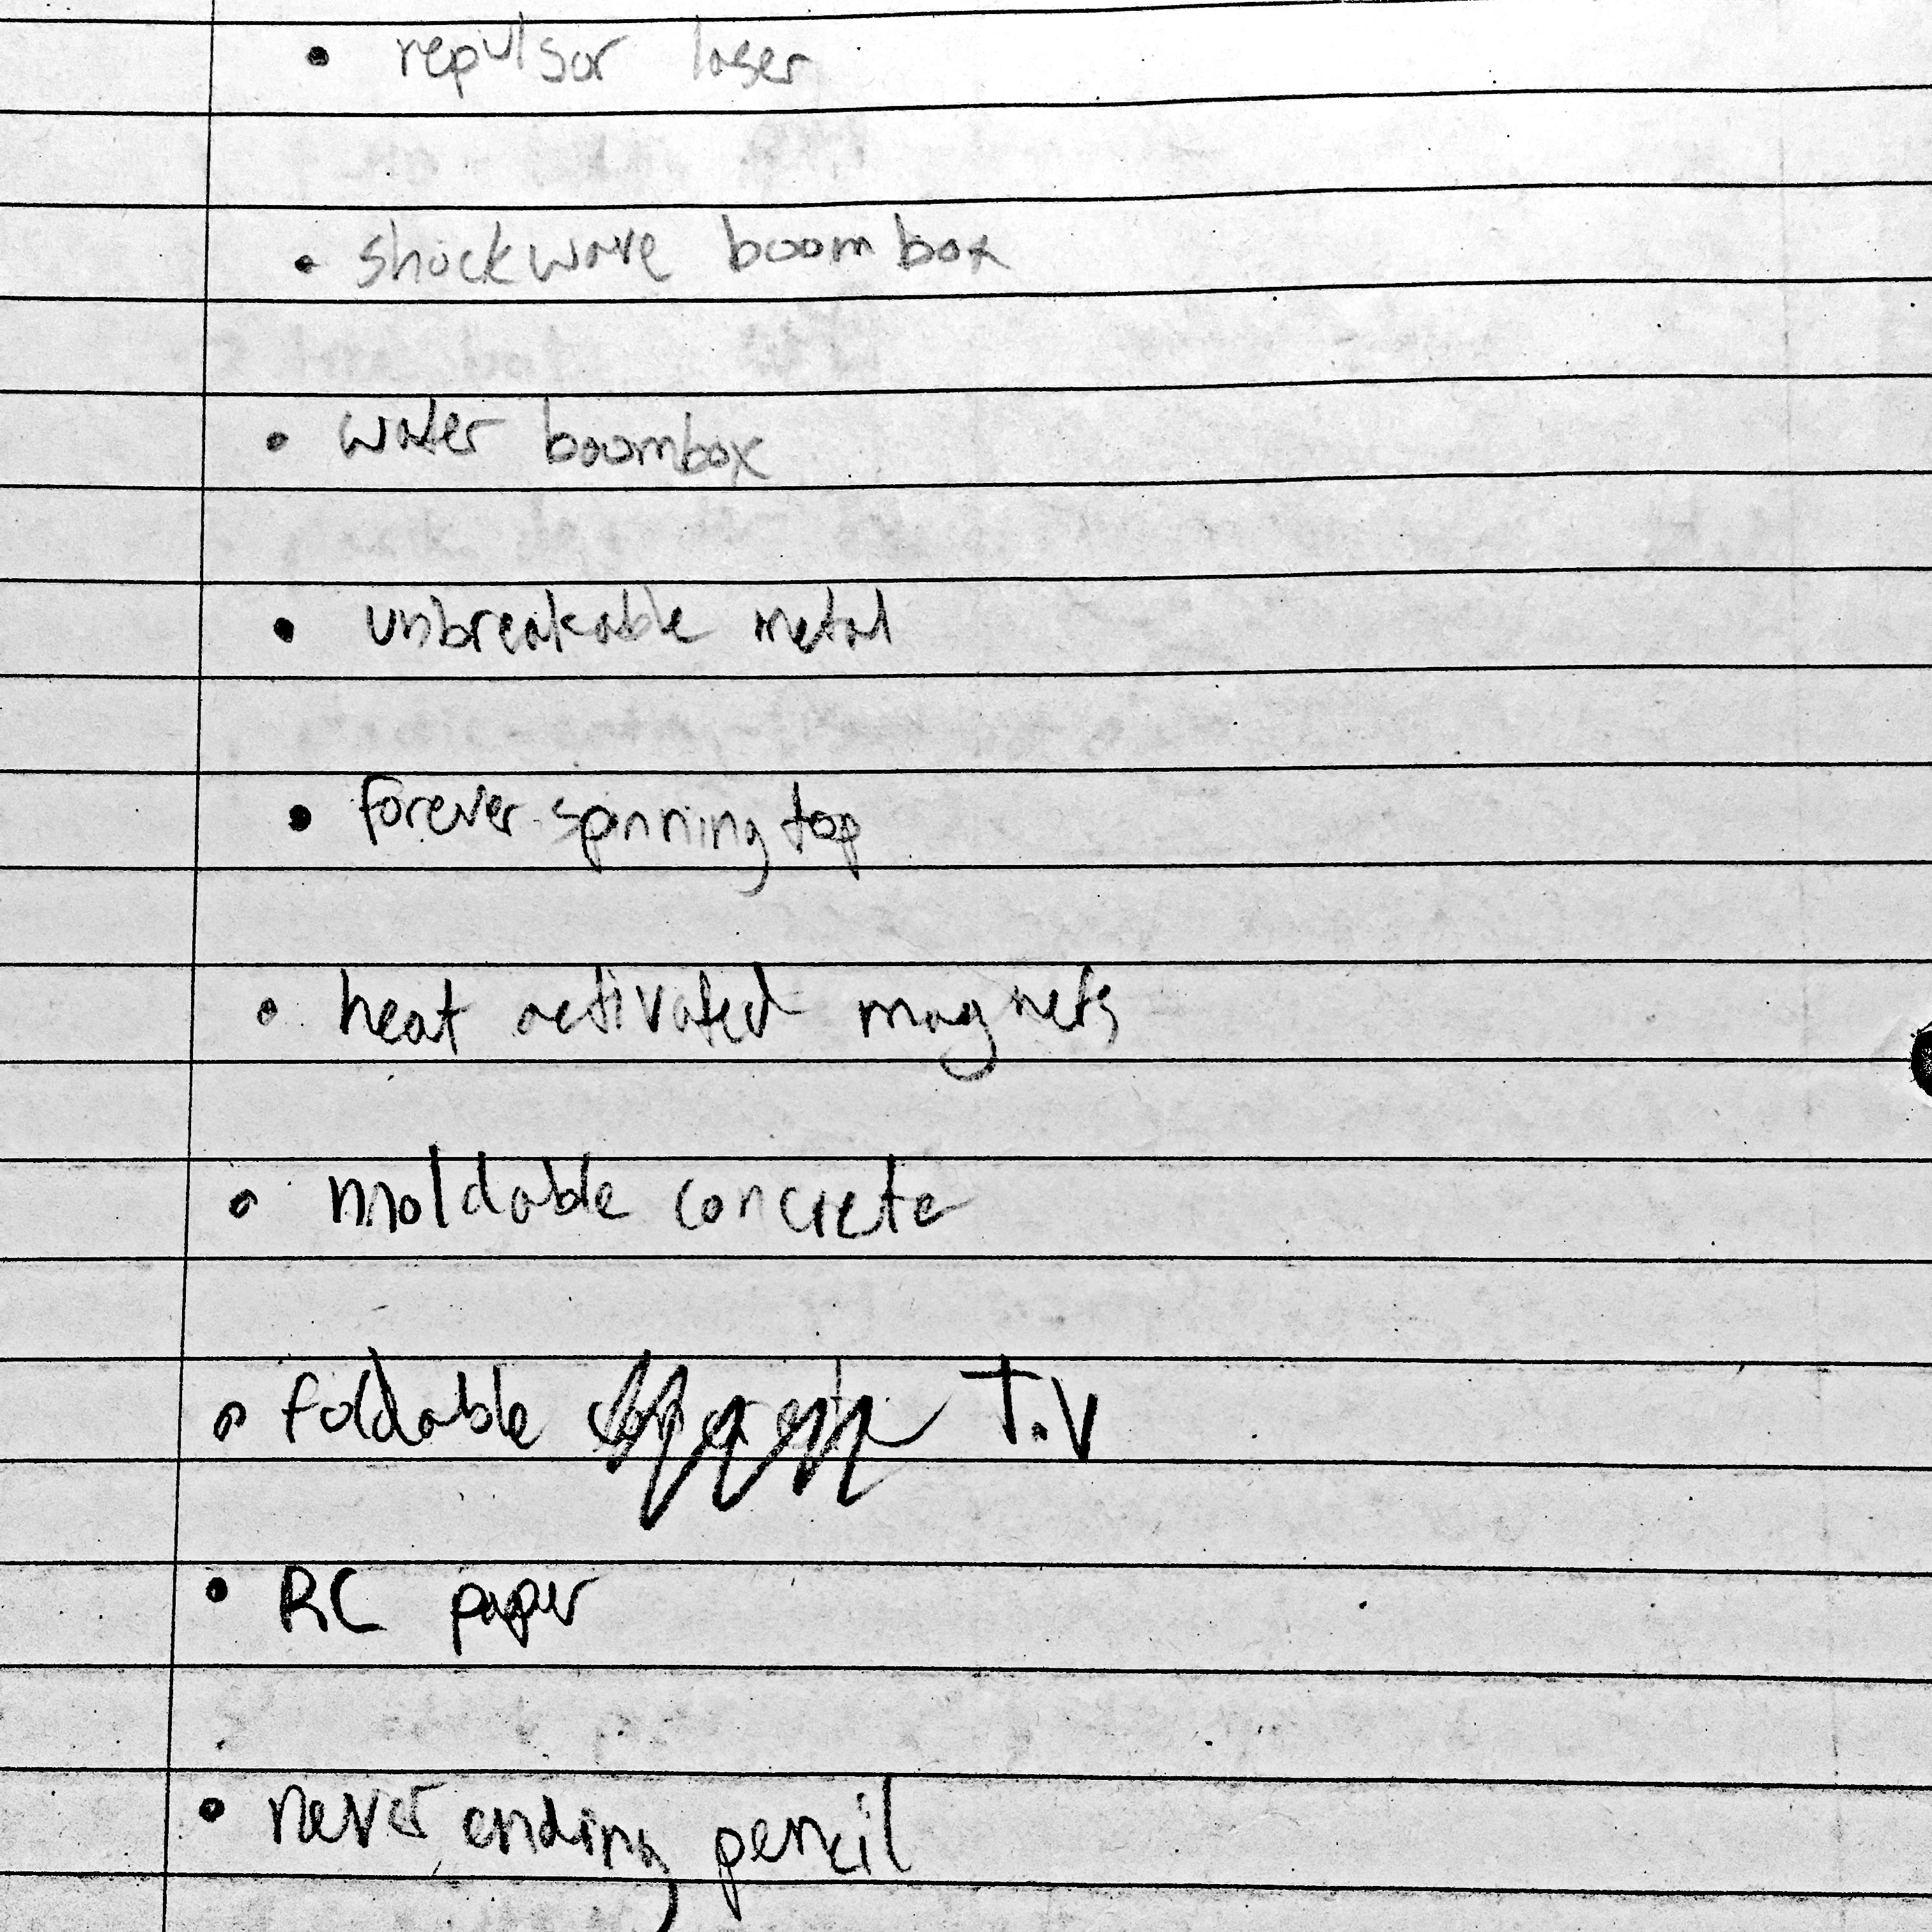 • repulsor laser
• shockwave boom box
• water boombox
• unbreakable metal
• forever spinning top
• heat activated magnets
• moldable concrete
• foldable T.V
• RC paper
• never ending pencil